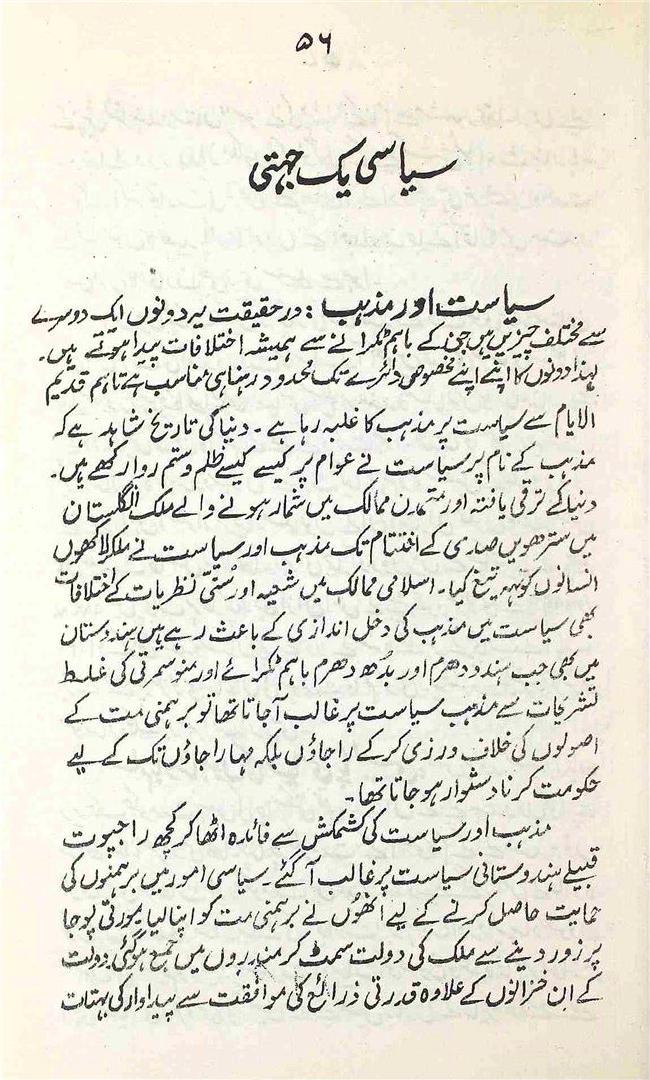 ۵۶
سیاسی یک جہتی
سیاست اور مذہب : درحقیقت یہ دونوں ایک دوسرے
سے مختلف چیزیں ہیں جن کے باہم ٹکرانے سے ہمیشہ اختلافات پیدا ہوتے ہیں۔
لہٰذا دونوں کا اپنے اپنے مخصوص دائرے تک محدود رہنا ہی مناسب ہے تاہم قدیم
الایام سے سیاست پر مذہب کا غلبہ رہا ہے۔ دنیا کی تاریخ شاہد ہے کہ
مذہب کے نام پر سیاست نے عوام پر کیسے کیسے ظلم و ستم روا رکھے ہیں۔
دنیا کے ترقی یافتہ اور متمدن ممالک میں شمار ہونے والے ملک انگلستان
میں سترھویں صدی کے اختتام تک مذہب اور سیاست نے ملکر لاکھوں
انسانوں کو تہہ تیغ کیا۔ اسلامی ممالک میں شیعہ اور سُنّی نظریات کے اختلافات
بھی سیاست میں مذہب کی دخل اندازی کے باعث رہے ہیں ہندوستان
میں بھی جب ہندو دھرم اور بدُھ دھرم باہم ٹکرائے اور منوسمرتی کی غلط
تشریحات سے مذہب سیاست پر غالب آجاتا تھا تو برہمنی مت کے
اصولوں کی خلاف ورزی کرکے راجاؤں بلکہ مہاراجاؤں تک کے لیے
حکومت کرنا دشوار ہو جاتا تھا۔
مذہب اور سیاست کی کشمکش سے فائدہ اٹھا کر کچھ راجپوت
قبیلے ہندوستانی سیاست پر غالب آگئے۔ سیاسی امور میں برہمنوں کی
حمایت حاصل کرنے کے لیے انھوں نے برہمنی مت کو اپنا لیا۔ مورتی پوجا
پر زور دینے سے ملک کی دولت سمٹ کر مندروں میں جمع ہوگئی۔ دولت
کے ان خزانوں کے علاوہ قدرتی ذرائع کی موافقت سے پیداوار کی بہتات